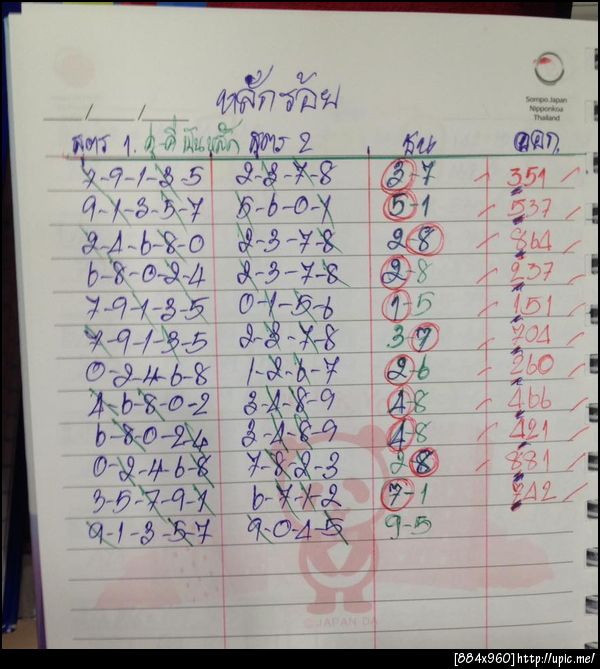 Sompo Japan
Nipponkoa
Thailand
หลักร้อย
/ / /
สูตร 1. คู่-คี่ สูตร 2 ชน ออก
7-9-1-3-5 2-3-7-8 3-7 351
9-1-3-5-7 5-6-0-1 5-1 537
2-4-6-8-0 2-3-7-8 2-8 864
6-8-0-2-4 2-3-7-8 2-8 237
7-9-1-3-5 0-1-5-6 1-5 151
7-9-1-3-5 2-3-7-8 3-7 704
0-2-4-6-8 1-2-6-7 2-6 260
4-6-8-0-2 3-4-8-9 4-8 466
6-8-0-2-4 3-4-8-9 4-8 421
0-2-4-6-8 7-8-2-3 2-8 881
3-5-7-9-1 6-7-1-2 7-1 742
9-1-3-5-7 9-0-4-5 9-5
©JAPAN-DA
[884x960]http://upic.me/